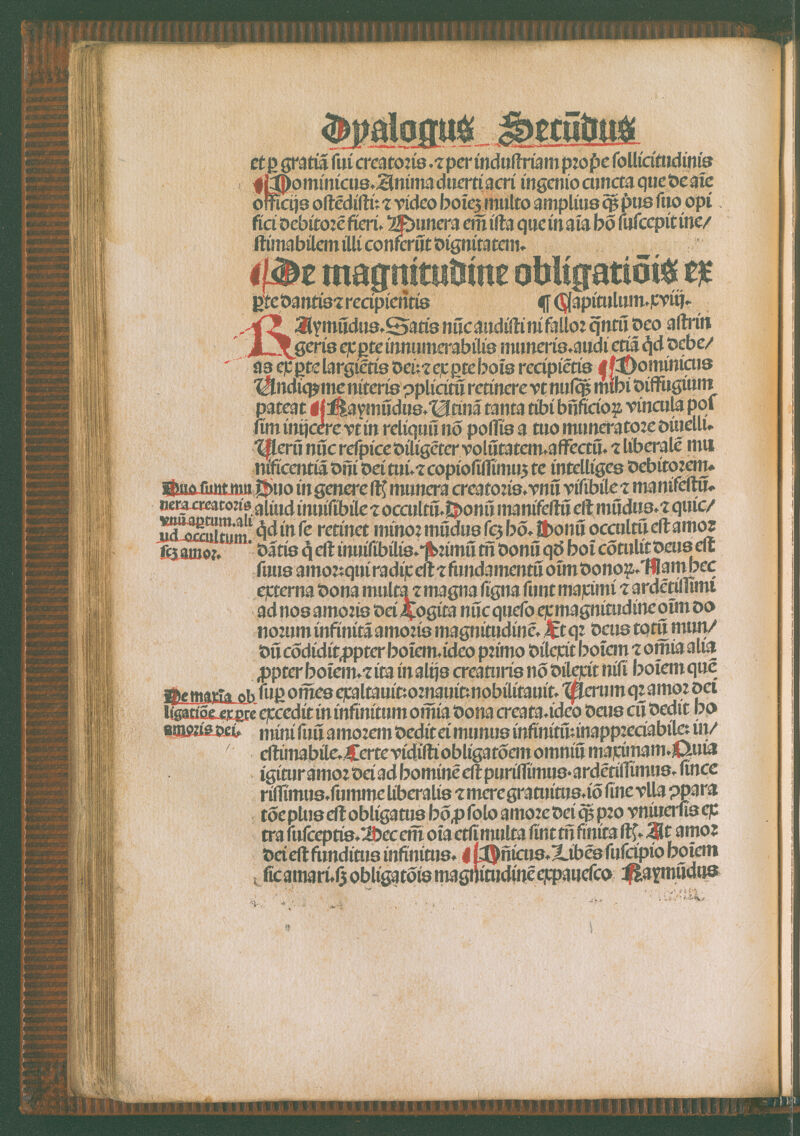 Dyalogus Secūdus
et ꝑ gratiā sui creatoris.⁊ per industriam prop̄e sollicitudinis
¶ Dominicus. Anima duerti acri ingenio cuncta que de aīe
officijs ostēdisti:⁊ video hoīeꝫ multo amplius qꝫ̄ p̄us suo opi
fici debitorē fieri. Munera em̄ ista que in aīa hō suscepit ine/
stimabilem illi conferūt dignitatem.
¶ De magnitudine obligatiōis ex
ꝑte dantis ⁊ recipientis ¶ Capitulum.xviij.
RAymūdus. Satis nūc audisti ni fallor q̄ntū deo astrin
geris ex ꝑte innumerabilis muneris.audi etiā qd̄ debe/
as ex ꝑte largiētis dei:⁊ ex ꝑte hoīs recipiētis ¶ Dominicus
Undiqꝫ me niteris ꝯplicitū retinere vt nusqꝫ̄ mihi diffugium
pateat ¶ Raymūdus. Utinā tanta tibi bn̄ficioꝝ vincula pos
sim inijcere vt in reliquū nō possis a tuo muneratore diuelli.
Uerū nūc respice diligēter volūtatem.affectū. ⁊ liberalē mu
nificentiā dn̄i dei tui.⁊ copiosissimuꝫ te intelliges debitorem.
Duo in genere st̄ munera creatoris.vnū visibile ⁊ manifestū.
aliud inuisibile ⁊ occultū. Donū manifestū est mūdus.⁊ quic/
qd̄ in se retinet minor mūdus scꝫ hō. Donū occultū est amor
dātis q̄ est inuisibilis. Primū tn̄ donū qd̄ hoī cōtulit deus est
suus amor:qui radix est ⁊ fundamentū oīm donoꝝ. Nam hec
externa dona multa ⁊ magna signa sunt maximi ⁊ ardētissimi
ad nos amoris dei Cogita nūc queso ex magnitudine oīm do
norum infinitā amoris magnitudinē. Et qꝛ deus totū mun/
dū cōdidit ꝓpter hoīem.ideo primo dilexit hoīem ⁊ om̄ia alia
ꝓpter hoīem.⁊ ita in alijs creaturis nō dilexit nisi hoīem quē
suꝑ om̄es exaltauit:ornauit:nobilitauit. Uerum qꝛ amor dei
excedit in infinitum om̄ia dona creata.ideo deus cū dedit ho
mini suū amorem dedit ei munus infinitū:inappreciabile: in/
estimabile. Certe vidisti obligatōem omniū maximam. Quia
igitur amor dei ad hominē est purissimus.ardētissimus. since
rissimus.summe liberalis ⁊ mere gratuitus.iō sine vlla ꝯpara
tōe plus est obligatus hō ꝓ solo amore dei qꝫ̄ pro vniuersis ex
tra susceptis. Hec em̄ oīa etsi multa sint tn̄ finita st̄. At amor
dei est funditus infinitus. ¶ Dn̄icus. Libēs suscipio hoīem
sic amari.sꝫ obligatōis magnitudinē expauesco Raymūdus
Duo sunt mu
nera creatoris
vnū aꝑtum.ali
ud occultum.
scꝫ amor.
De maxīa ob
ligatiōe ex ꝑte
amoris dei.